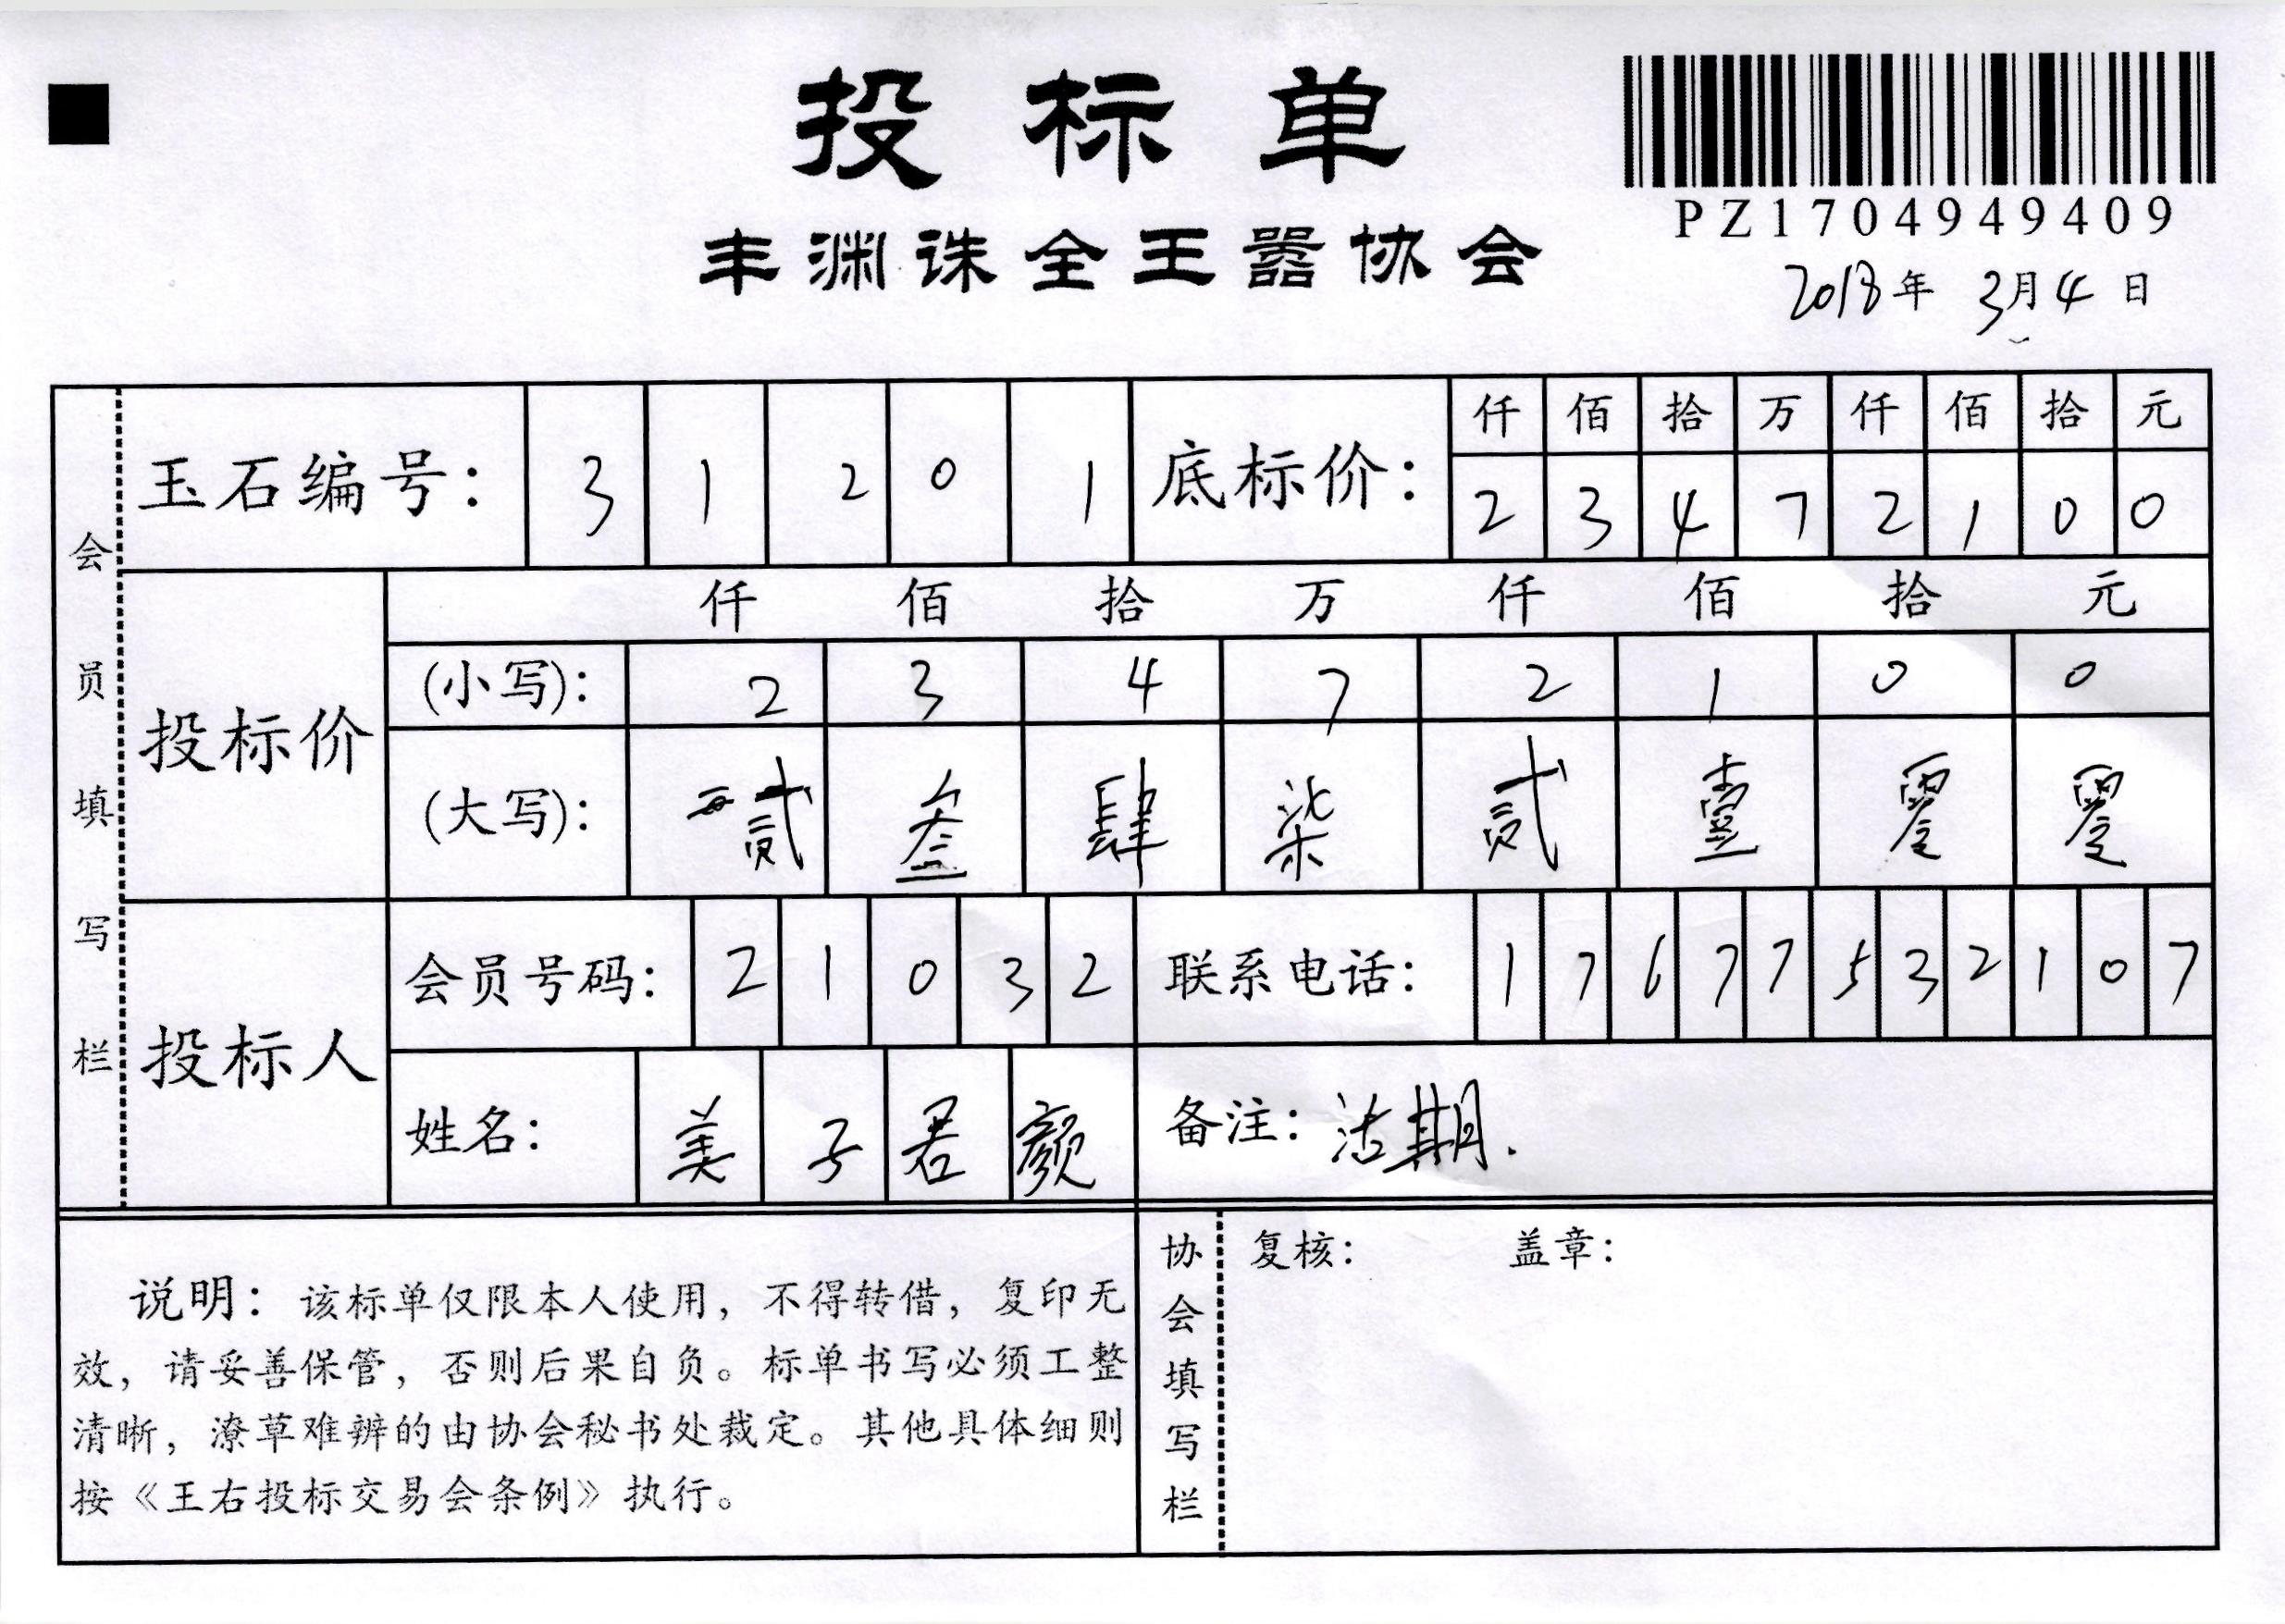 投标单
PZ1704949409
丰渊诛全王嚣协会
2018年 3月4日
会员填写栏
玉石编号： 3 1 2 0 1
底标价： 仟 佰 拾 万 仟 佰 拾 元
2 3 4 7 2 1 0 0
投标价
仟 佰 拾 万 仟 佰 拾 元
(小写)： 2 3 4 7 2 1 0 0
(大写)： 贰 叁 肆 柒 贰 壹 零 零
投标人
会员号码： 2 1 0 3 2
联系电话： 1 7 6 7 7 5 3 2 1 0 7
姓名： 美 子 君 颜
备注：活期.
说明：该标单仅限本人使用，不得转借，复印无
效，请妥善保管，否则后果自负。标单书写必须工整
清晰，潦草难辨的由协会秘书处裁定。其他具体细则
按《王右投标交易会条例》执行。
协会填写栏
复核： 盖章：